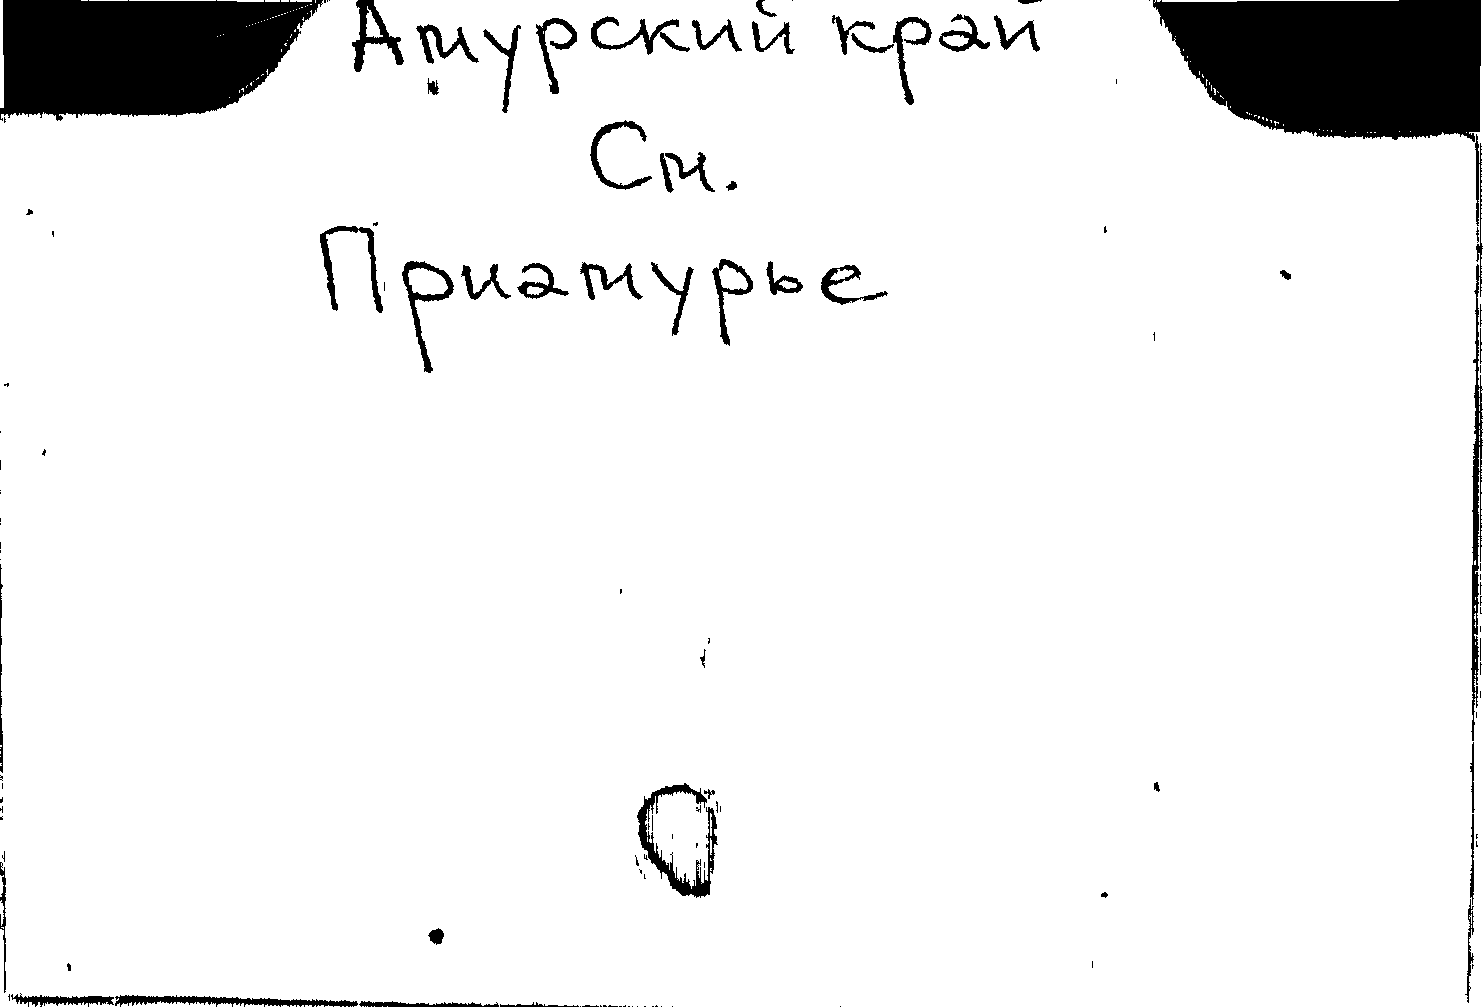 Амурский край
См.
Приамурье